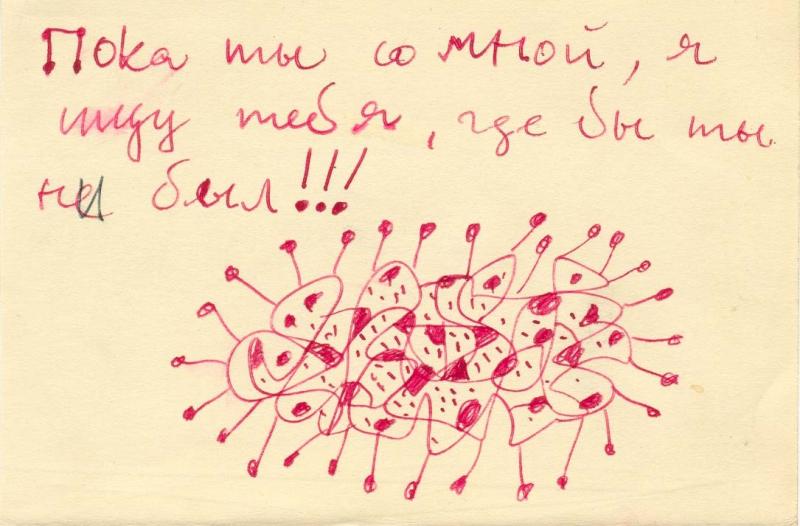 Пока ты со мной, я
ищу тебя, где бы ты
ни был!!!